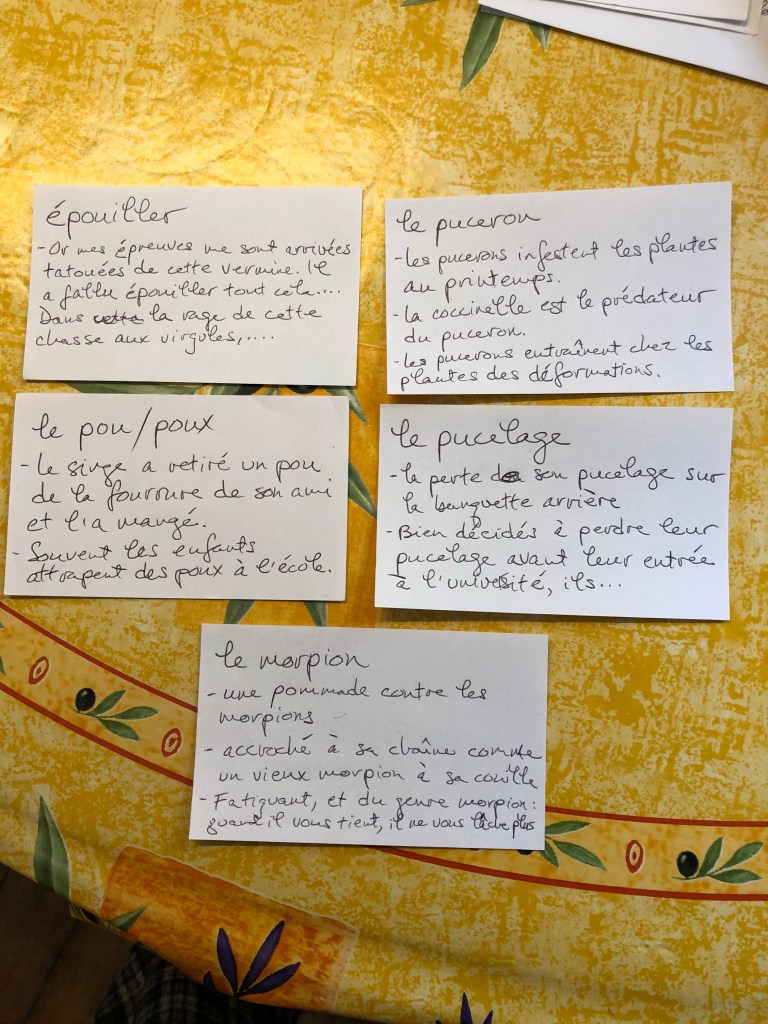 épouiller
- Or mes épreuves me sont arrivées
tatouées de cette vermine. Il
a fallu épouiller tout cela....
Dans cette la rage de cette
chasse aux virgules,....
le puceron
- les pucerons infestent les plantes
au printemps.
- la coccinelle est le prédateur
du puceron.
- les pucerons entraînent chez les
plantes des déformations.
le pou/poux
- le singe a retiré un pou
de la fourrure de son ami
et l'a mangé.
- Souvent les enfants
attrapent des poux à l'école.
le pucelage
- la perte de son pucelage sur
la banquette arrière
- Bien décidés à perdre leur
pucelage avant leur entrée
à l'université, ils...
le morpion
- une pommade contre les
morpions
- accroché à sa chaîne comme
un vieux morpion à sa couille
- Fatiguant, et du genre morpion:
quand il vous tient, il ne vous lâche plus